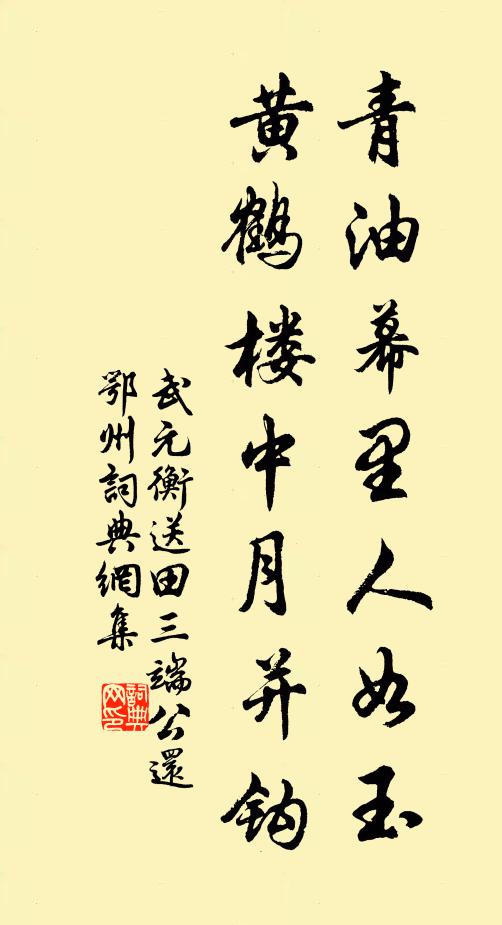 青油幕里人如玉
黄鹤楼中月并钩
武元衡送田三端公還
鄂州詞典網集
詞典
网印